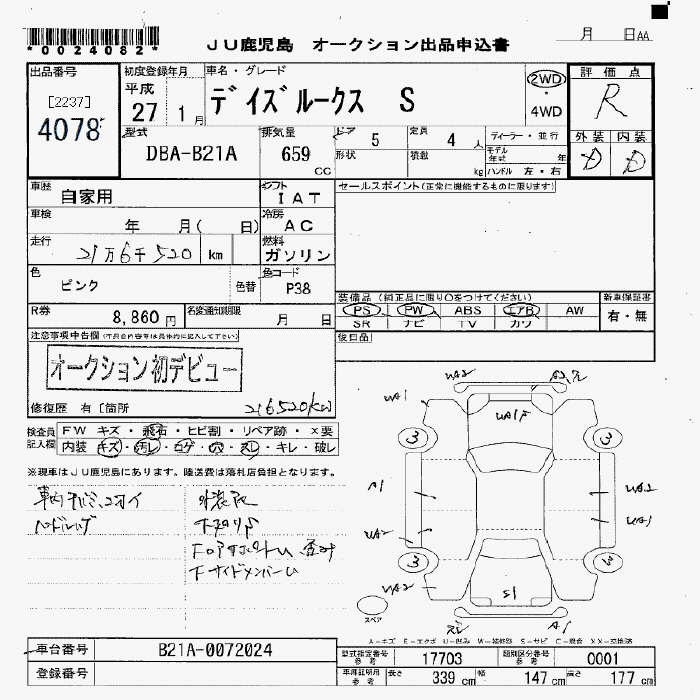 *0024082*
JU鹿児島 オークション出品申込書
月 日AA
出品番号
[2237]
4078
初度登録年月
平成
27 1月
車名・グレード
デイズルークス S
2WD
・
4WD
評価点
R
外装 内装
D D
型式
DBA-B21A
排気量
659
CC
ドア
5
定員
4人
形状
積数
kg
ディーラー・並行
モデル年式 年
ハンドル 左・右
車歴
自家用
シフト
IAT
セールスポイント(正常に機能するものに限ります)
車検
年 月( 日)
冷房
AC
走行
21万6千520 km
燃料
ガソリン
色
ピンク
色替
色コード
P38
装備品(純正品に限り○をつけてください)
PS PW ABS エアB AW
SR ナビ TV カワ
新車保証書
有・無
R券
8,860円
名変通知期限
月 日
後日品
注意事項申告欄
オークション初デビュー
修復歴 有〔箇所
216520km
検査員記入欄
FW キズ・飛石・ヒビ割・リペア跡・×要
内装 キズ・汚レ・コゲ・穴・スレ・キレ・破レ
※現車はJU鹿児島にあります。陸送費は落札店負担となります。
外装
UA2
UA1
UA1F
3
3
A1
UA2
UA1
UA2
3
3
UA2
S1
スペア
A1
A-キズ E-エクボ U-凹み W-補修跡 S-サビ C-腐食 XX-交換済
車台番号
B21A-0072024
登録番号
型式指定番号 参考
17703
類別区分番号 参考
0001
車両証明用 参考
長さ 339 cm
幅 147 cm
高さ 177 cm